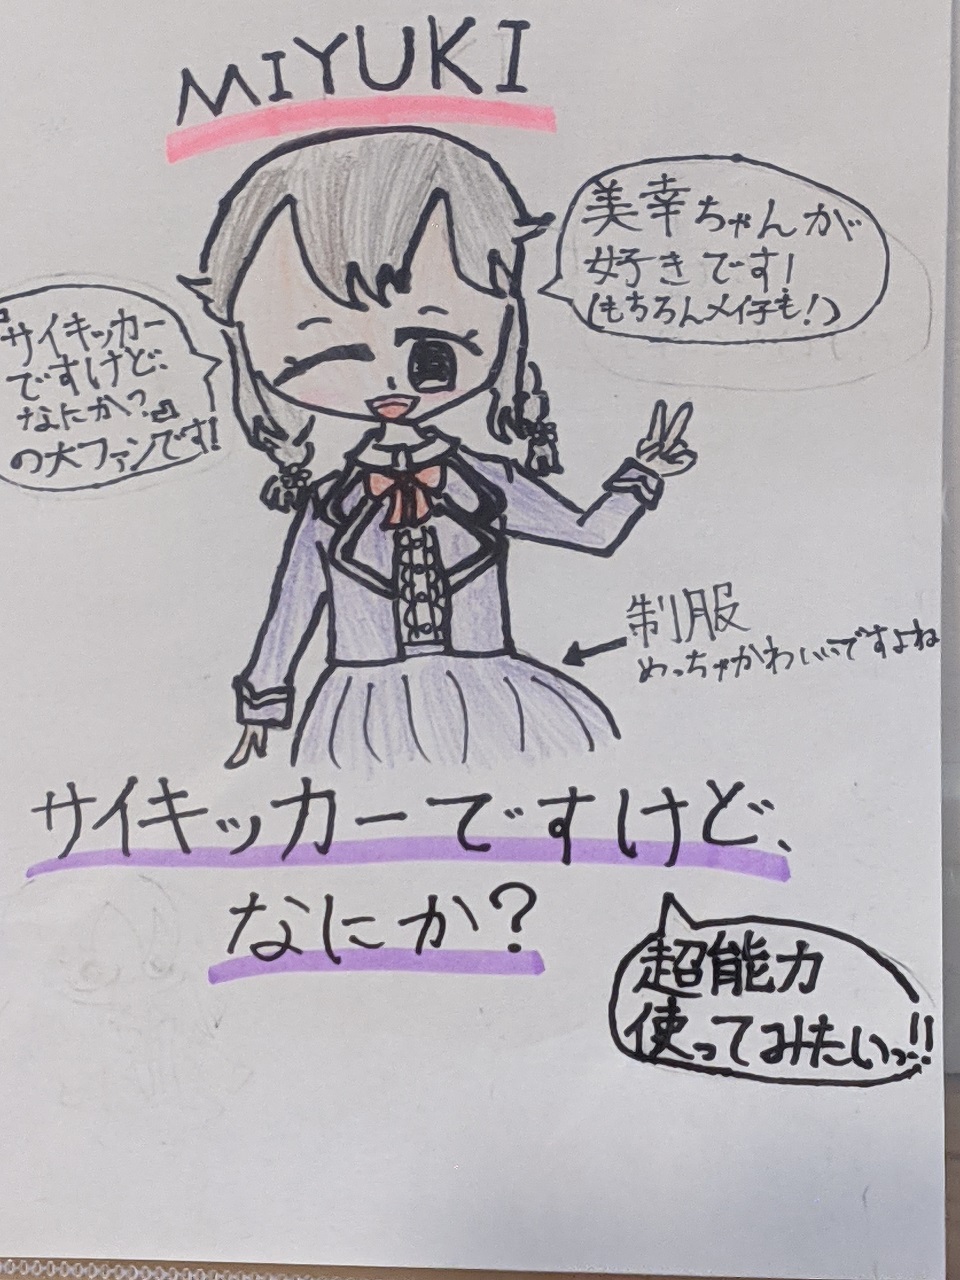 MIYUKI
美幸ちゃんが
好きです!
(もちろんメイ子も!)
『サイキッカー
ですけど、
なにか?』
の大ファンです!
制服
めっちゃかわいいですよね
サイキッカーですけど、
なにか?
超能力
使ってみたいっ!!